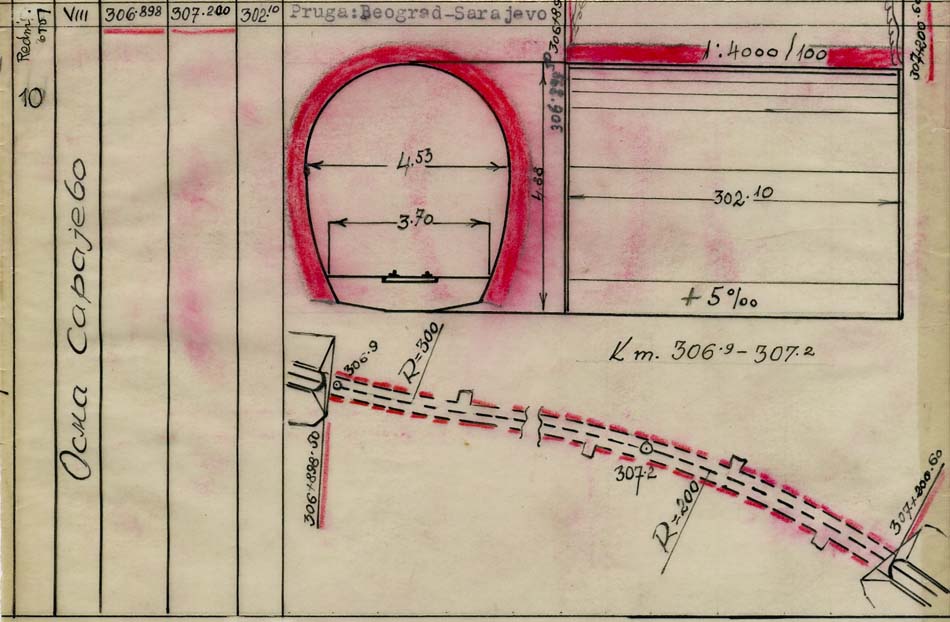 Redni broj
VIII 306·898 307·200 302.10 Pruga:Beograd-Sarajevo
10
Осма Сарајево
306+898.50
1:4000/100
307+200.60
4.53
3.70
4.88
302.10
+5‰
Km. 306.9-307.2
306.9
R=300
306+898.50
307.2
R=200
307+200.60